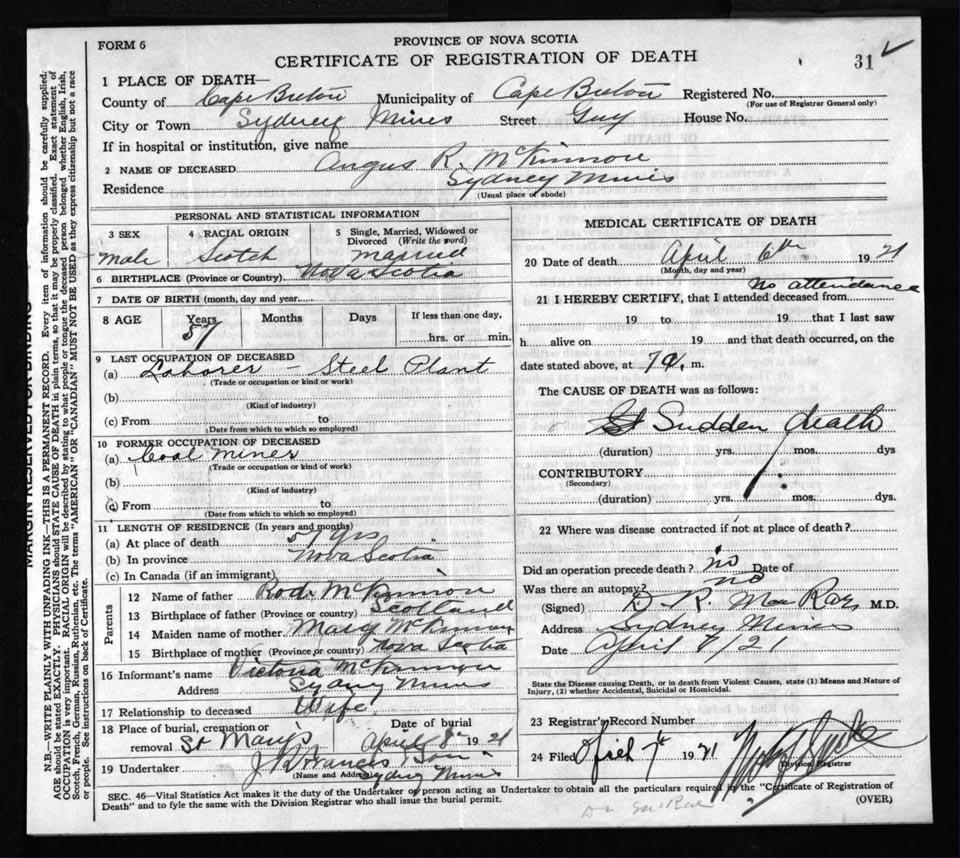 FORM 6
PROVINCE OF NOVA SCOTIA
CERTIFICATE OF REGISTRATION OF DEATH
31
1 PLACE OF DEATH—
County of Cape Breton Municipality of Cape Breton Registered No.
(For use of Registrar General only)
City or Town Sydney Mines Street Guy House No.
If in hospital or institution, give name
2 NAME OF DECEASED Angus R. McKinnon
Residence Sydney Mines
(Usual place of abode)
PERSONAL AND STATISTICAL INFORMATION
3 SEX 4 RACIAL ORIGIN 5 Single, Married, Widowed or Divorced (Write the word)
Male Scotch Married
6 BIRTHPLACE (Province or Country) Nova Scotia
7 DATE OF BIRTH (month, day and year)
8 AGE Years Months Days If less than one day,
57 hrs. or min.
9 LAST OCCUPATION OF DECEASED
(a) Laborer – Steel Plant
(Trade or occupation or kind of work)
(b)
(Kind of industry)
(c) From to
(Date from which to which so employed)
10 FORMER OCCUPATION OF DECEASED
(a) Coal miner
(Trade or occupation or kind of work)
(b)
(Kind of industry)
(c) From to
(Date from which to which so employed)
11 LENGTH OF RESIDENCE (In years and months)
(a) At place of death 57 yrs
(b) In province Nova Scotia
(c) In Canada (if an immigrant)
Parents
12 Name of father Rod. McKinnon
13 Birthplace of father (Province or country) Scotland
14 Maiden name of mother Mary McKinnon
15 Birthplace of mother (Province or country) Nova Scotia
16 Informant's name Victoria McKinnon
Address Sydney Mines
17 Relationship to deceased Wife
18 Place of burial, cremation or removal St Mary's Date of burial April 8th 1921
19 Undertaker Sydney Mines
(Name and Address)
MEDICAL CERTIFICATE OF DEATH
20 Date of death April 6th 1921
(Month, day and year)
No attendance
21 I HEREBY CERTIFY, that I attended deceased from
19 to 19 that I last saw
h alive on 19 and that death occurred, on the
date stated above, at 7 a. m.
The CAUSE OF DEATH was as follows:
Sudden death
(duration) yrs. mos. dys
CONTRIBUTORY
(Secondary)
(duration) yrs. mos. dys.
22 Where was disease contracted if not at place of death?
Did an operation precede death? no Date of
Was there an autopsy? no
(Signed) D. R. MacRae M.D.
Address Sydney Mines
Date April 7/21
State the Disease causing Death, or in death from Violent Causes, state (1) Means and Nature of Injury, (2) whether Accidental, Suicidal or Homicidal.
23 Registrar's Record Number
24 Filed April 7th 1921
Division Registrar
SEC. 46—Vital Statistics Act makes it the duty of the Undertaker or person acting as Undertaker to obtain all the particulars required in the "Certificate of Registration of
Death" and to fyle the same with the Division Registrar who shall issue the burial permit. (OVER)
Dr McRae
MARGIN RESERVED FOR BINDING
N.B.—WRITE PLAINLY WITH UNFADING INK—THIS IS A PERMANENT RECORD. Every item of information should be carefully supplied;
AGE should be stated EXACTLY. PHYSICIANS should STATE CAUSE OF DEATH in plain terms, so that it may be properly classified. Exact statement of
OCCUPATION is very important. RACIAL ORIGIN will be described by stating to what people or tongue the deceased person belonged, whether English, Irish,
Scotch, French, German, Russian, Ruthenian, etc. The terms "AMERICAN" OR "CANADIAN" MUST NOT BE USED as they express citizenship but not a race
or people. See instructions on back of Certificate.